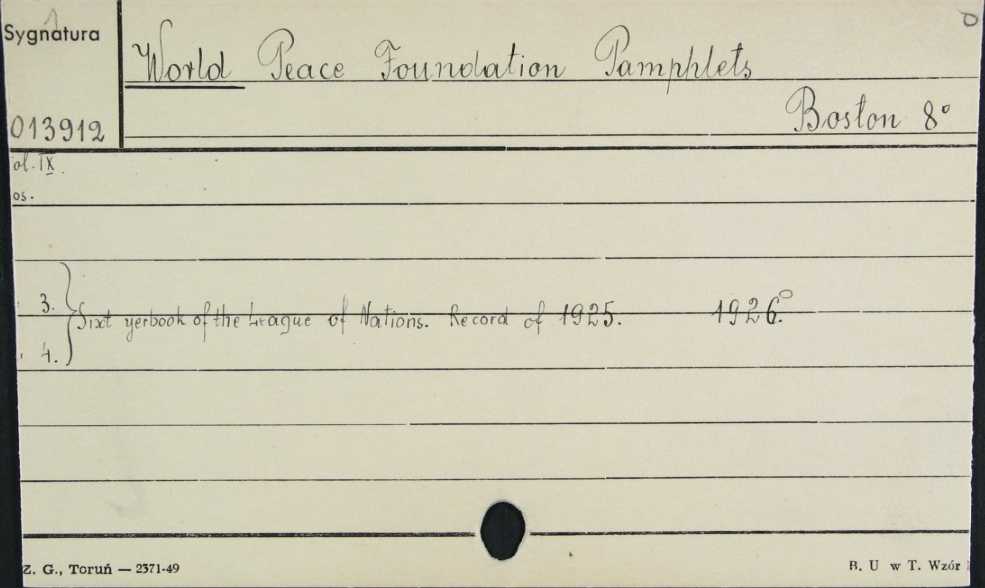 Sygnatura
World Peace Foundation Pamphlets
Boston 8°
013912
ol. IX.
os.
3.
Sixt yerbook of the League of Nations. Record of 1925. 1926.
4.
Z. G., Toruń — 2371-49
B. U w T. Wzór